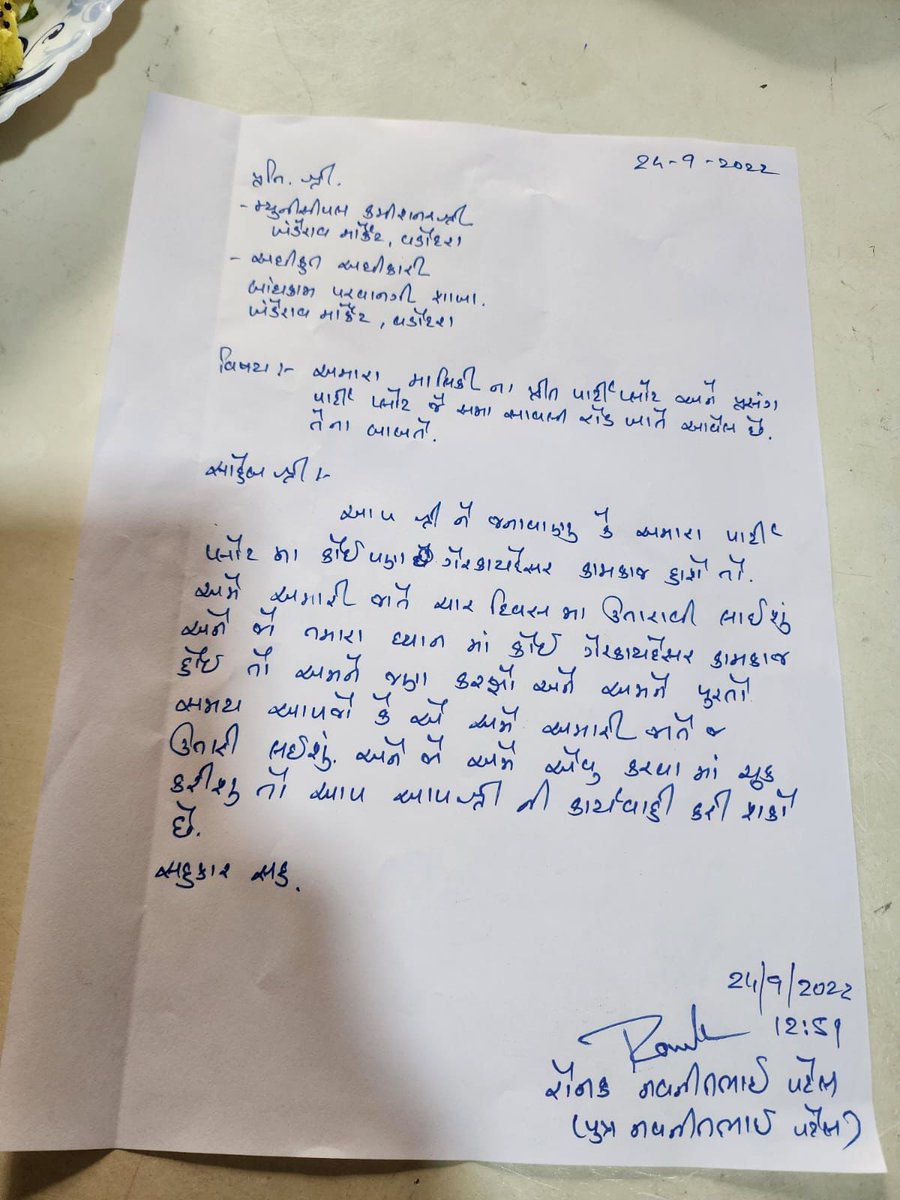 24-9-2022
પ્રતિ. શ્રી.
- મ્યુનીસીપલ કમીશનર શ્રી
ખંડેરાવ માર્કેટ, વડોદરા
- અધીકૃત અધીકારી
બાંધકામ પરવાનગી શાખા.
ખંડેરાવ માર્કેટ, વડોદરા
વિષય :- અમારા માલિકી ના પ્રીત પાર્ટી પ્લોટ અને પ્રસંગ
પાર્ટી પ્લોટ જે સમા સાવલી રોડ ખાતે આવેલ છે.
તેના બાબતે.
સાહેબ શ્રી :-
આપ શ્રી ને જનાવાણુ કે અમારા પાર્ટી
પ્લોટ મા કોઈ પણ ગેરકાયદેસર કામકાજ હશે તો.
અમે અમારી જાતે ચાર દિવસ મા ઉતારાવી લઈશું
અને જો તમારા ધ્યાન માં કોઈ ગેરકાયદેસર કામકાજ
હોઈ તો અમને જાણ કરશો અને અમને પુરતો
સમય આપજો કે એ અમે અમારી જાતે જ
ઉતારી લઈશું. અને જો અમે એવુ કરવા માં ચુક
કરીશું તો આપ આપશ્રી ની કાર્યવાહી કરી શકો
છો.
સહકાર સહ.
24/9/2022
12:59
રોનક નવનીતભાઈ પટેલ
(પુત્ર નવનીતભાઈ પટેલ)